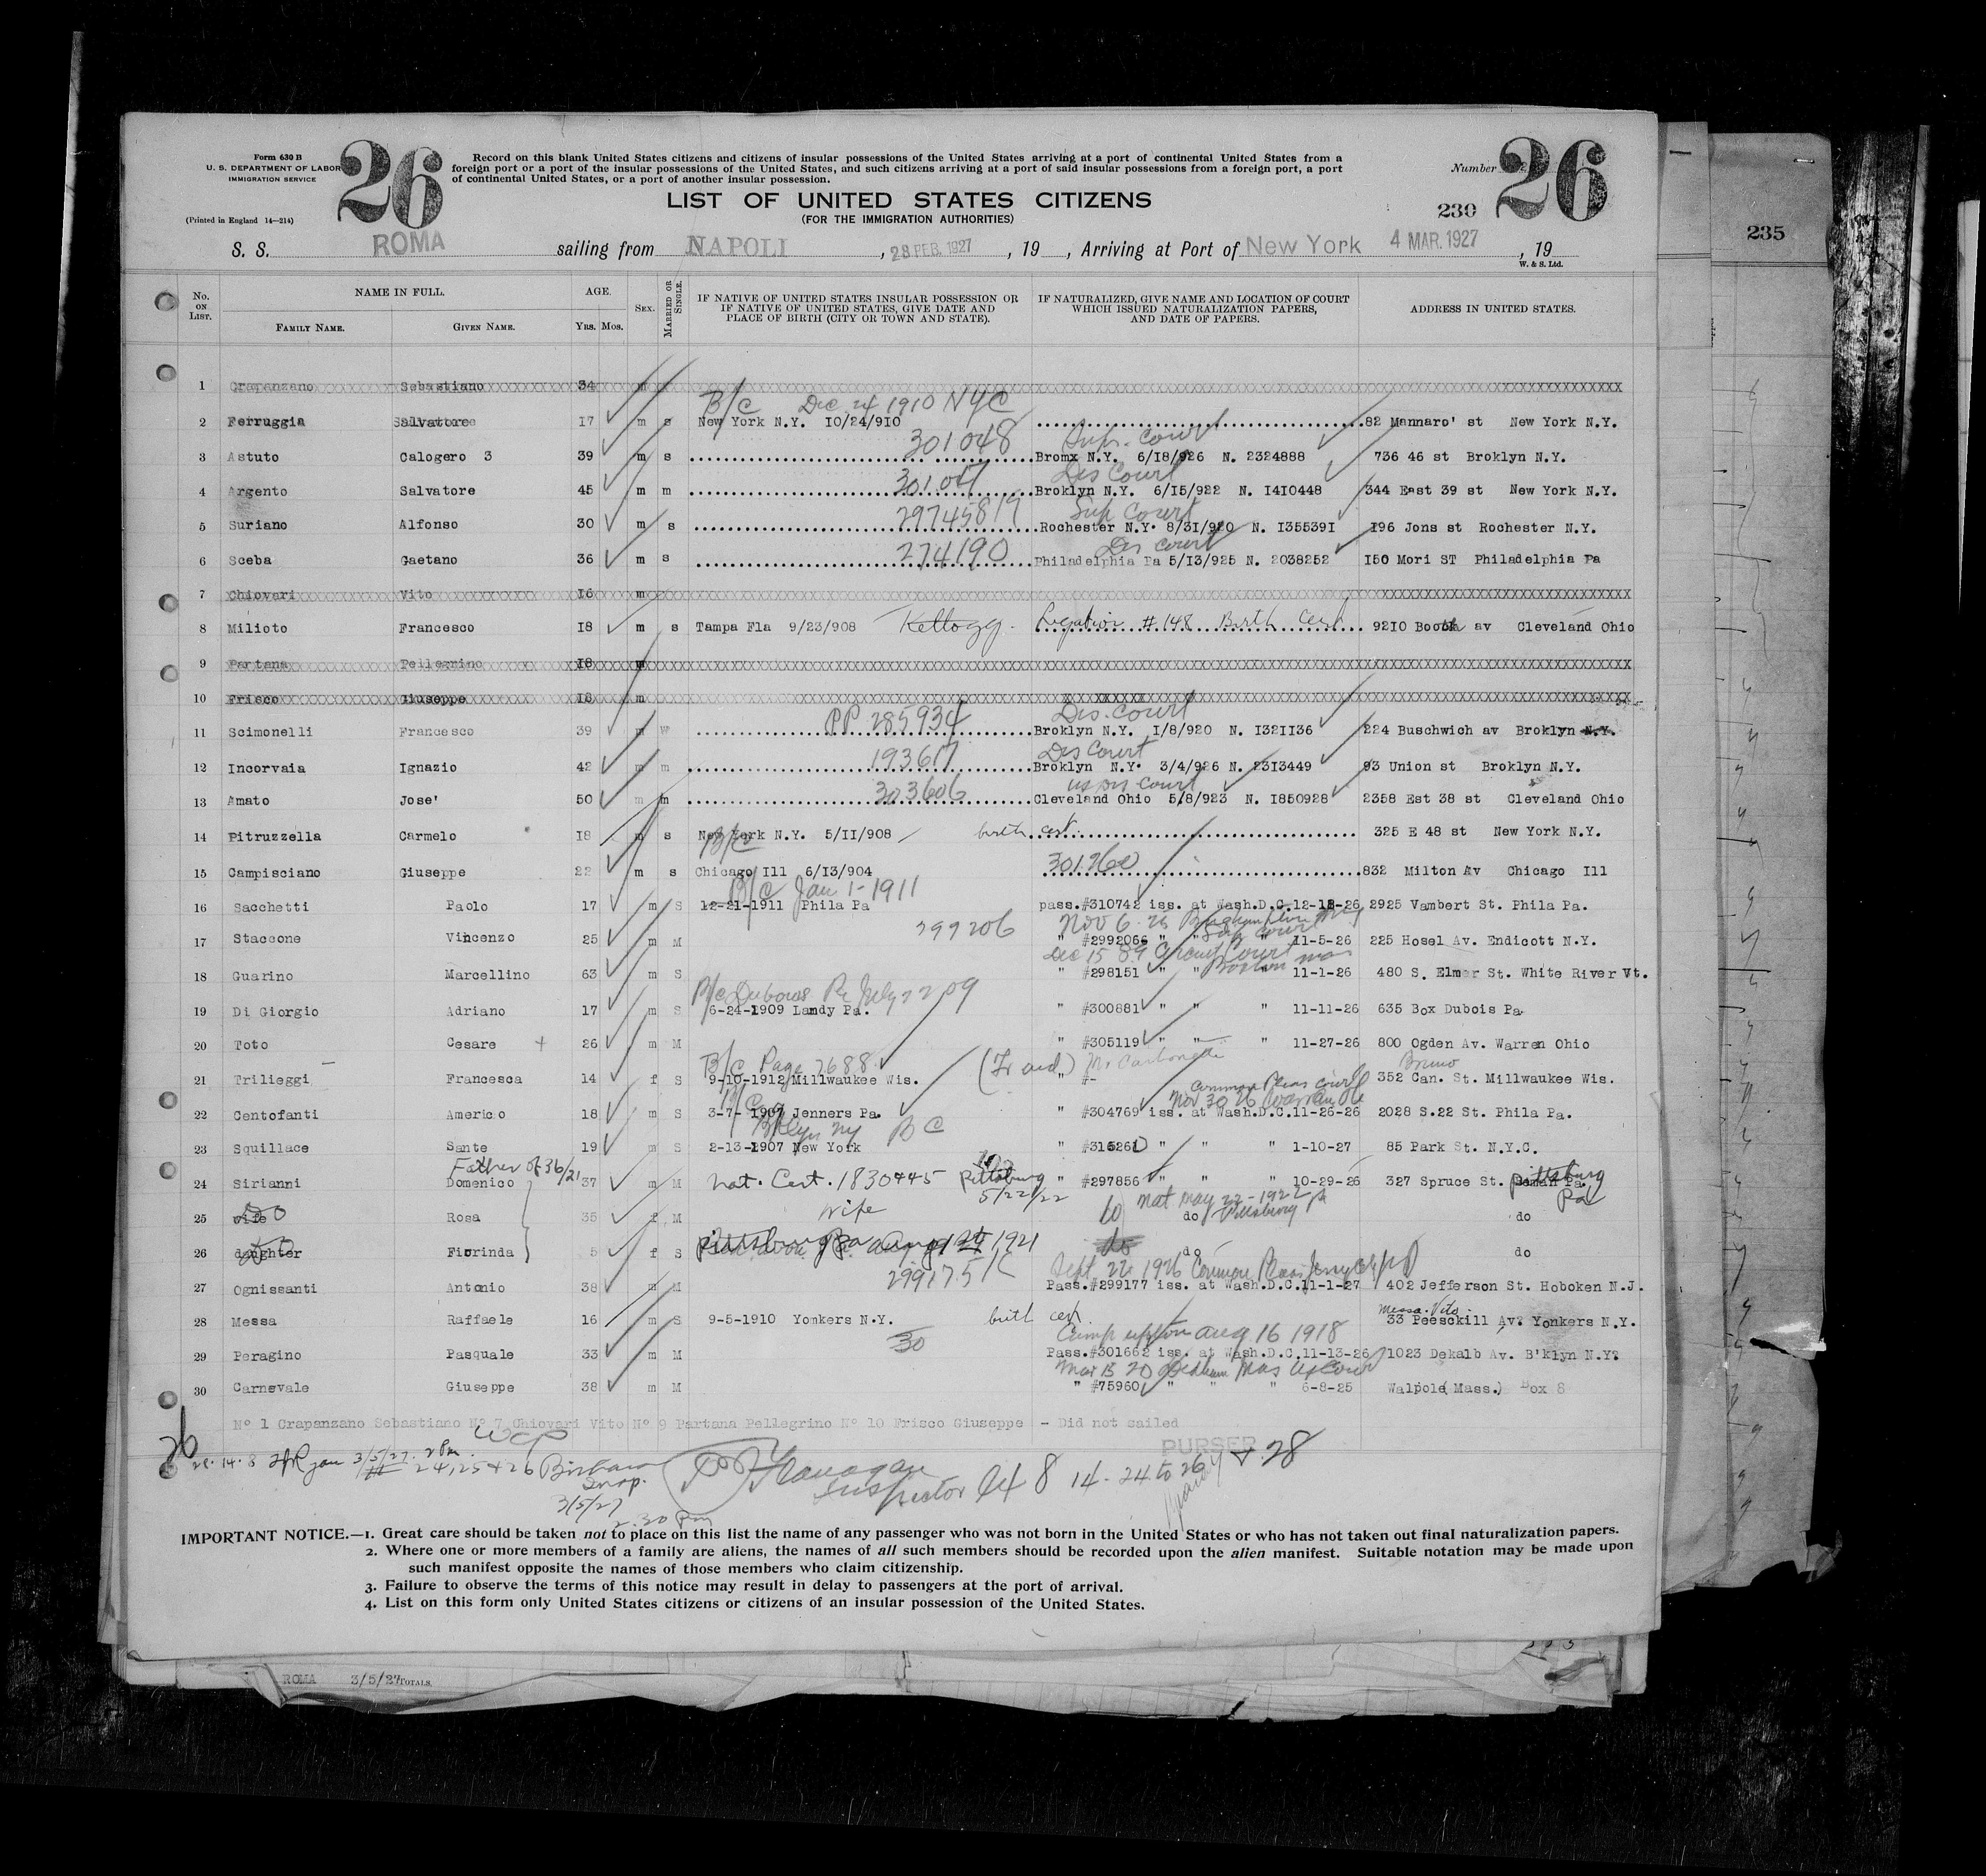 Form 630 B
U. S. DEPARTMENT OF LABOR
IMMIGRATION SERVICE
(Printed in England 14—214)
26
Record on this blank United States citizens and citizens of insular possessions of the United States arriving at a port of continental United States from a
foreign port or a port of the insular possessions of the United States, and such citizens arriving at a port of said insular possessions from a foreign port, a port
of continental United States, or a port of another insular possession.
LIST OF UNITED STATES CITIZENS
(FOR THE IMMIGRATION AUTHORITIES)
Number 26
230
235
S. S. ROMA sailing from NAPOLI, 28 FEB. 1927, 19 , Arriving at Port of New York 4 MAR. 1927, 19
W. & S. Ltd.
No. ON LIST. NAME IN FULL. FAMILY NAME. GIVEN NAME. AGE. YRS. MOS. SEX. MARRIED OR SINGLE. IF NATIVE OF UNITED STATES INSULAR POSSESSION OR IF NATIVE OF UNITED STATES, GIVE DATE AND PLACE OF BIRTH (CITY OR TOWN AND STATE). IF NATURALIZED, GIVE NAME AND LOCATION OF COURT WHICH ISSUED NATURALIZATION PAPERS, AND DATE OF PAPERS. ADDRESS IN UNITED STATES.
1 Crapanzano Sebastiano 34 m
B/C Dec 24 1910 NYC
2 Ferruggia Salvatore 17 m s New York N.Y. 10/24/910 82 Mannaro' st New York N.Y.
301048 Sup. Court
3 Astuto Calogero 3 39 m s Bromx N.Y. 6/18/926 N. 2324888 736 46 st Broklyn N.Y.
Dis Court
4 Argento Salvatore 45 m m Broklyn N.Y. 6/15/922 N. 1410448 344 East 39 st New York N.Y.
Sup Court
5 Suriano Alfonso 30 m s Rochester N.Y. 8/31/920 N. 135539I 196 Jons st Rochester N.Y.
274190 Dis Court
6 Sceba Gaetano 36 m s Philadelphia Pa 5/13/925 N. 2038252 150 Mori ST Philadelphia Pa
7 Chiovari Vito 16 m
8 Milioto Francesco 18 m s Tampa Fla 9/23/908 Kellogg. Legation #148 Birth Cert 9210 Booth av Cleveland Ohio
9 Partana Pellegrino 18 m
10 Frisco Giuseppe 18 m
PP 285934 Dis. Court
11 Scimonelli Francesco 39 m w Broklyn N.Y. 1/8/920 N. 1321136 224 Buschwich av Broklyn N.Y.
193617 Dis Court
12 Incorvaia Ignazio 42 m m Broklyn N.Y. 3/4/926 N. 2313449 93 Union st Broklyn N.Y.
303606 US Dis Court
13 Amato Jose' 50 m m Cleveland Ohio 5/8/923 N. 1850928 2358 Est 38 st Cleveland Ohio
14 Pitruzzella Carmelo 18 m s New York N.Y. 5/11/908 birth cert. 325 E 48 st New York N.Y.
B/C
15 Campisciano Giuseppe 22 m s Chicago Ill 6/13/904 301260 832 Milton Av Chicago Ill
B/C Jan 1-1911
16 Sacchetti Paolo 17 m S 12-21-1911 Phila Pa pass.#310742 iss. at Wash.D.C.12-18-26 2925 Vambert St. Phila Pa.
299206 Nov 6 26 Binghamton Sup Court
17 Staccone Vincenzo 25 m M " #2992066 " " " 11-5-26 225 Hosel Av. Endicott N.Y.
Dec 15 89 Circuit Court Boston Mas
18 Guarino Marcellino 63 m S " #298151 " " " 11-1-26 480 S. Elmer St. White River Vt.
B/C Dubois Pa July 22 09
19 Di Giorgio Adriano 17 m S 6-24-1909 Landy Pa. " #300881 " " " 11-11-26 635 Box Dubois Pa.
20 Toto Cesare + 26 m M " #305119 " " " 11-27-26 800 Ogden Av. Warren Ohio
B/C Page 2688 Bruno
21 Trilieggi Francesca 14 f S 9-10-1912 Millwaukee Wis. " #- 352 Can. St. Millwaukee Wis.
Common Pleas Court Nov 30 26 Warren
22 Centofanti Americo 18 m S 3-7-1907 Jenners Pa. " #304769 iss. at Wash.D.C.11-26-26 2028 S.22 St. Phila Pa.
Bklyn NY B C
23 Squillace Sante 19 m S 2-13-1907 New York " #315261 " " " 1-10-27 85 Park St. N.Y.C.
Father of 36/21
24 Sirianni Domenico 37 m M Nat. Cert. 1830445 Pittsburg 5/22/22 " #297856 " " " 10-29-26 327 Spruce St. Pittsburg Pa
25 wife Rosa 35 f M wife do Nat May 22-1922 Pittsburg Pa do do
26 daughter Fiorinda 5 f S Pittsburg Pa 1921 do do
299175 Sept 22 1926 Common Pleas
27 Ognissanti Antonio 38 m M Pass.#299177 iss. at Wash.D.C.11-1-27 402 Jefferson St. Hoboken N.J.
Messa Vito
28 Messa Raffaele 16 m S 9-5-1910 Yonkers N.Y. birth cert. 33 Peesckill Av. Yonkers N.Y.
30 Camp Upton Aug 16 1918
29 Peragino Pasquale 33 m M Pass.#301662 iss. at Wash.D.C.11-13-26 1023 Dekalb Av. B'klyn N.Y.
Mar 15 20 Dedham Mas
30 Carnevale Giuseppe 38 m M " #75960 " " " 6-8-25 Walpole (Mass.) Box 8
Nº 1 Crapanzano Sebastiano Nº 7 Chiovari Vito Nº 9 Partana Pellegrino Nº 10 Frisco Giuseppe - Did not sailed
PURSER
26
28.14.8 3/5/27. 2 Pm
24,25 + 26
Insp.
3/5/27
2.30 Pm
Flanagan
Inspector 8 14. 24 to 26 + 28
IMPORTANT NOTICE.—1. Great care should be taken not to place on this list the name of any passenger who was not born in the United States or who has not taken out final naturalization papers.
2. Where one or more members of a family are aliens, the names of all such members should be recorded upon the alien manifest. Suitable notation may be made upon
such manifest opposite the names of those members who claim citizenship.
3. Failure to observe the terms of this notice may result in delay to passengers at the port of arrival.
4. List on this form only United States citizens or citizens of an insular possession of the United States.
ROMA 3/5/27 TOTALS.